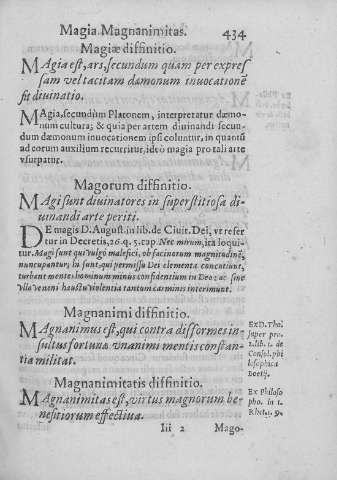 Magia Magnanimitas. 434
Magiæ diffinitio.
MAgia est, ars, secundum quam per expres
sam vel tacitam dæmonum inuocationē
fit diuinatio.
MAgia, secundùm Platonem, interpretatur dæmo-
num cultura; & quia per artem diuinandi secun-
dum dæmonum inuocationem ipsi coluntur, in quantū
ad eorum auxilium recurritur, ideò magia pro tali arte
vsurpatur.
Magorum diffinitio.
MAgi sunt diuinatores in superstitiosa di-
uinandi arte periti.
DE magis D. August. in lib. de Ciuit. Dei, vt refer
tur in Decretis, 26. q. 5. cap. Nec mirum, ità loqui-
tur. Magi sunt qui vulgò malefici, ob facinorum magnitudinē,
nuncupantur; hi sunt, qui permissu Dei elementa concutiunt,
turbant mentes hominum minus confidentium in Deo; ac sine
vlla veneni haustu violentia tantum carminis interimunt.
Magnanimi diffinitio.
MAgnanimus est, qui contra difformes in-
sultus fortunæ vnanimi mentis constan-
tia militat.
Ex D. Tho.
super pro.
1. lib. 1. de
Consol. phi
losophica
Boetij.
Magnanimitatis diffinitio.
MAgnanimitas est, virtus magnorum be-
neficiorum effectiua.
Ex Philoso
pho. in 1.
Rhet. c. 9.
Iii 2 Mago-